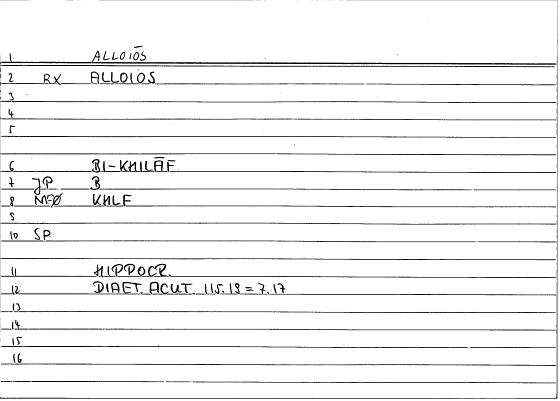 1 ALLOIŌS
2 RX ALLOIOS
3
4
5
6 BI-KHILĀF
7 JP B
8 MFØ KHLF
9
10 SP
11 HIPPOCR.
12 DIAET. ACUT. 115.18 = 7.17
13
14
15
16